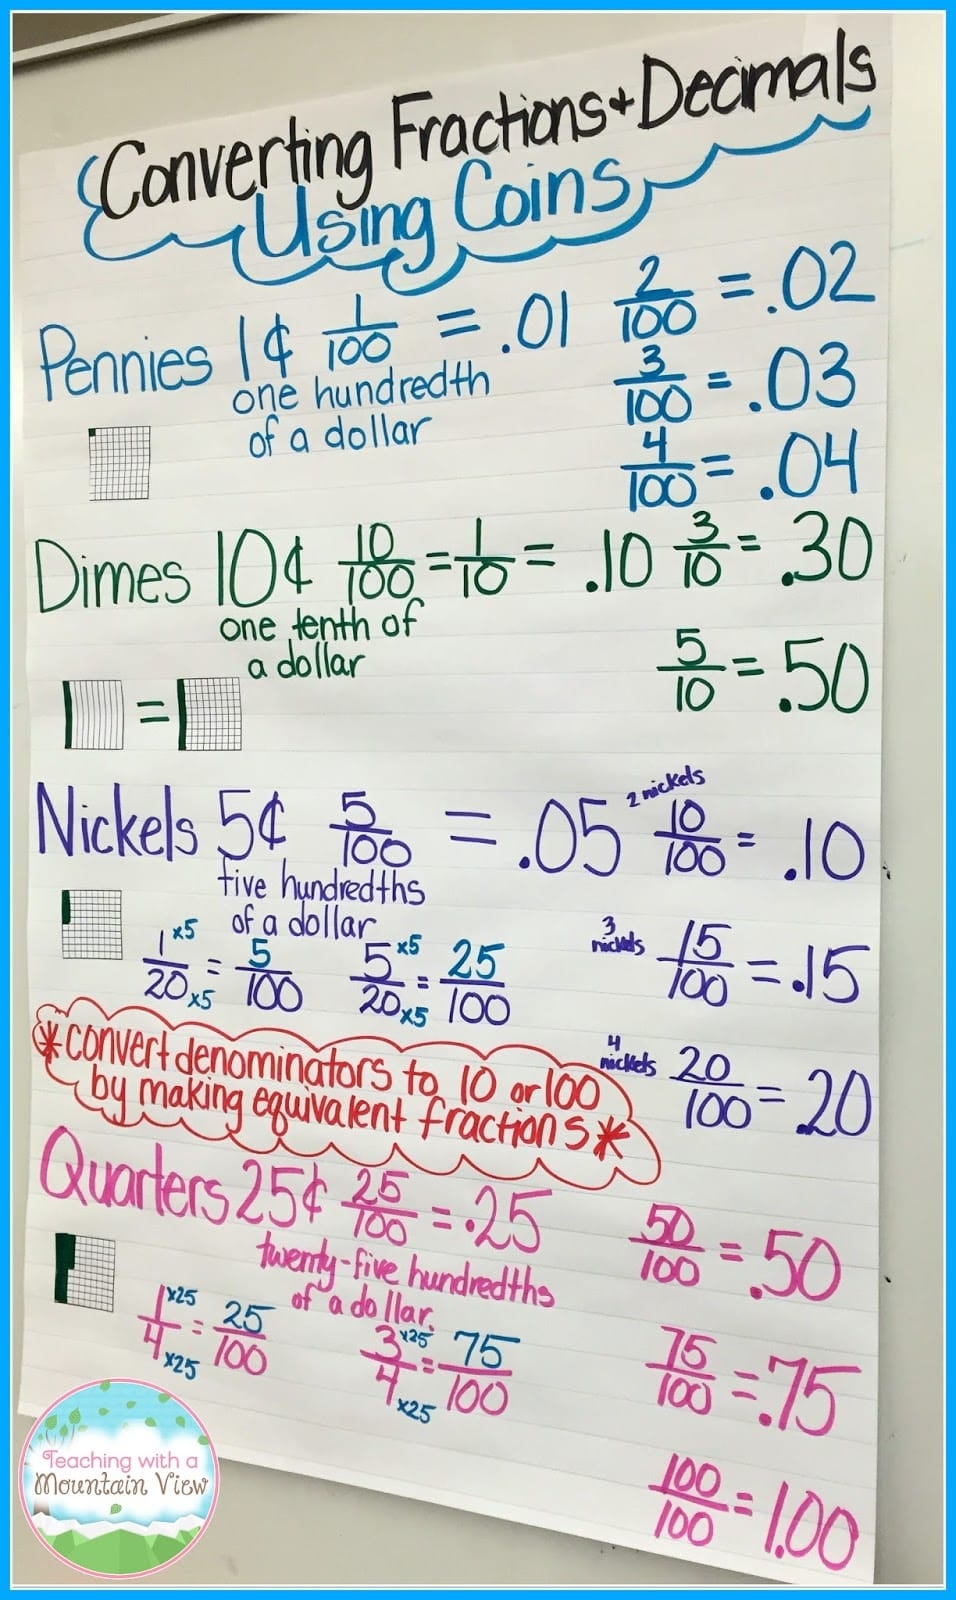 Converting Fractions + Decimals
Using Coins
Pennies 1¢ 1/100 = .01 2/100 = .02
one hundredth
of a dollar
3/100 = .03
4/100 = .04
Dimes 10¢ 10/100 = 1/10 = .10 3/10 = .30
one tenth of
a dollar
5/10 = .50
=
Nickels 5¢ 5/100 = .05 2 nickels 10/100 = .10
five hundredths
of a dollar
1/20 x5 x5 = 5/100 5/20 x5 x5 = 25/100
3 nickels 15/100 = .15
4 nickels 20/100 = .20
*convert denominators to 10 or 100
by making equivalent fractions*
Quarters 25¢ 25/100 = .25
twenty-five hundredths
of a dollar.
50/100 = .50
1/4 x25 x25 = 25/100 3/4 x25 x25 = 75/100
75/100 = .75
100/100 = 1.00
Teaching with a
Mountain View